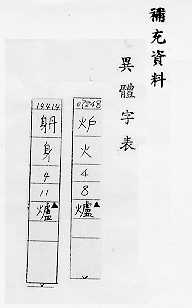 補充資料
異體字表
炉
火
4
8
爐▲
19414
身
4
11
爐▲